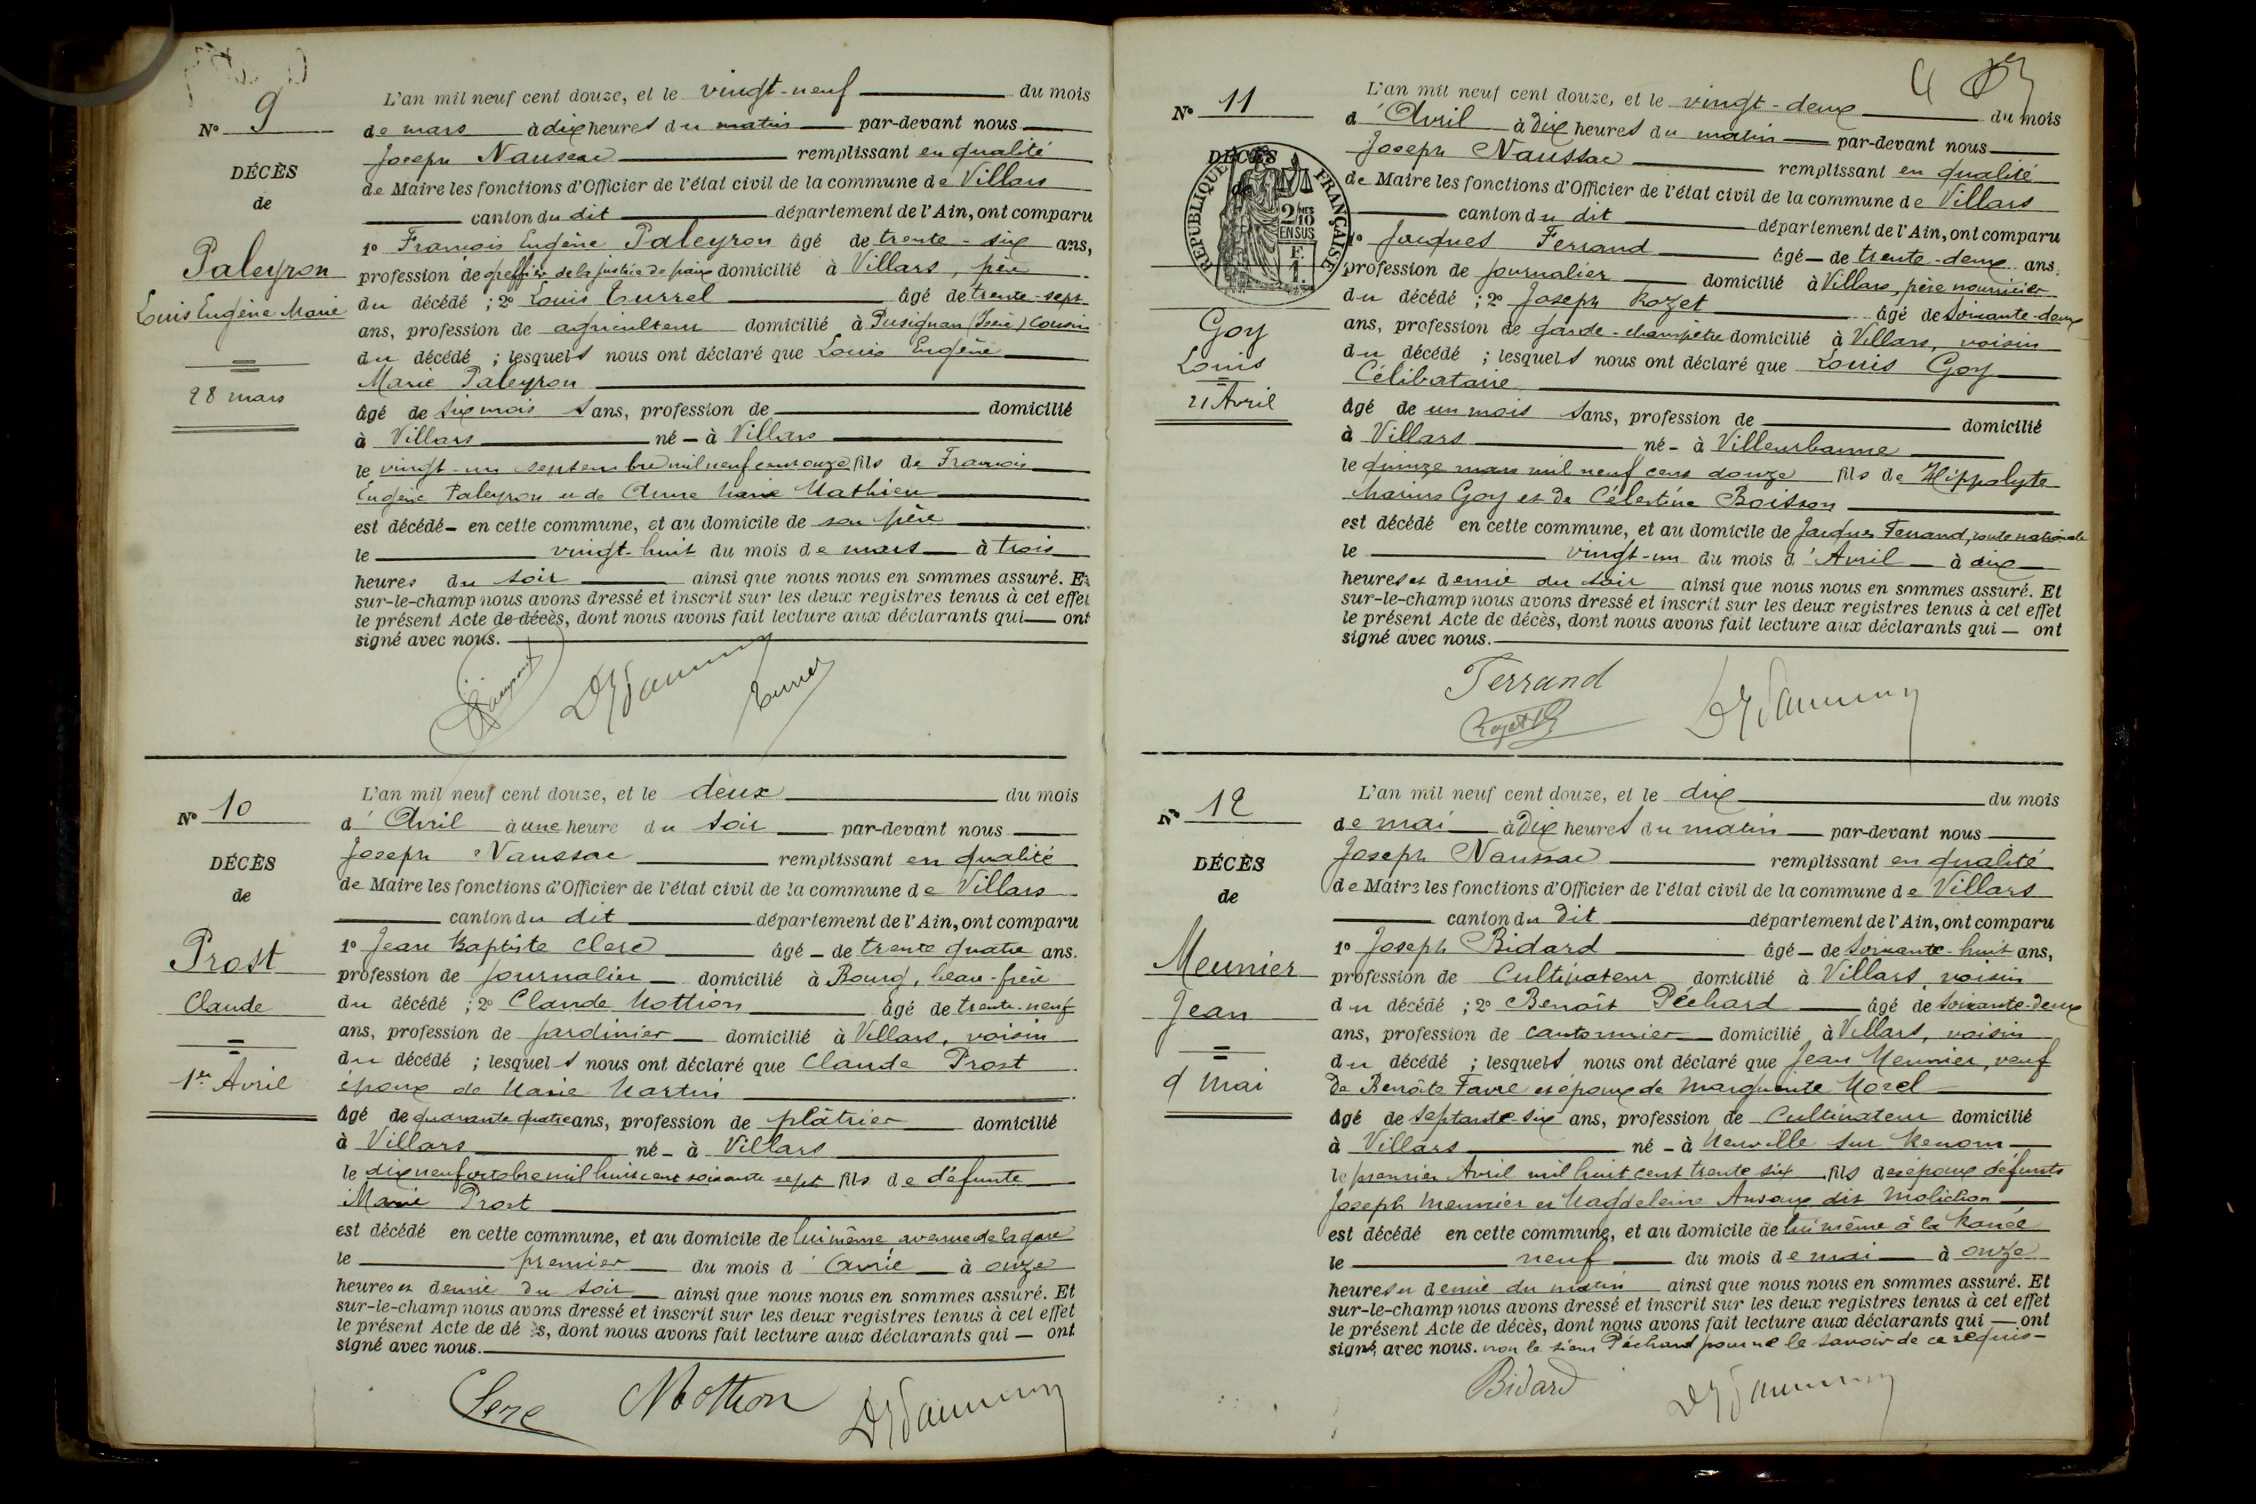 N° 9
DÉCÈS
de
Paleyron
Louis Eugène Marie
28 mars
L'an mil neuf cent douze, et le vingt-neuf du mois
de mars à dix heures du matin par-devant nous
Joseph Naussac remplissant en qualité
de Maire les fonctions d'Officier de l'état civil de la commune de Villars
canton du dit département de l'Ain, ont comparu
1° François Eugène Paleyron âgé de trente-six ans,
profession de greffier de la justice de paix domicilié à Villars, père
du décédé ; 2° Louis Turrel âgé de trente-sept
ans, profession de agriculteur domicilié à Pusignan (Isère) cousin
du décédé ; lesquels nous ont déclaré que Louis Eugène
Marie Paleyron
âgé de six mois sans, profession de domicilié
à Villars né à Villars
le vingt-un septembre mil neuf cent onze fils de François
Eugène Paleyron et de Anne Marie Mathieu
est décédé en cette commune, et au domicile de son père
le vingt-huit du mois de mars à trois
heures du soir ainsi que nous nous en sommes assuré. Et
sur-le-champ nous avons dressé et inscrit sur les deux registres tenus à cet effet
le présent Acte de décès, dont nous avons fait lecture aux déclarants qui ont
signé avec nous.
N° 10
DÉCÈS
de
Prost
Claude
1er Avril
L'an mil neuf cent douze, et le deux du mois
d'Avril à une heure du soir par-devant nous
Joseph Naussac remplissant en qualité
de Maire les fonctions d'Officier de l'état civil de la commune de Villars
canton du dit département de l'Ain, ont comparu
1° Jean Baptiste Clerc âgé de trente quatre ans.
profession de journalier domicilié à Bourg, beau-frère
du décédé ; 2° Claude Mottion âgé de trente-neuf
ans, profession de jardinier domicilié à Villars, voisin
du décédé ; lesquels nous ont déclaré que Claude Prost
époux de Marie Martin
âgé de quarante quatre ans, profession de plâtrier domicilié
à Villars né à Villars
le dix neuf octobre mil huit cent soixante sept fils de défunte
Marie Prost
est décédé en cette commune, et au domicile de lui même avenue de la gare
le premier du mois d'Avril à onze
heures et demie du soir ainsi que nous nous en sommes assuré. Et
sur-le-champ nous avons dressé et inscrit sur les deux registres tenus à cet effet
le présent Acte de dé s, dont nous avons fait lecture aux déclarants qui ont
signé avec nous.
Clerc Mottion
4
N° 11
DÉCÈS
de
RÉPUBLIQUE FRANÇAISE
2/10 MES
EN SUS
F.
1.
Goy
Louis
21 Avril
L'an mil neuf cent douze, et le vingt-deux du mois
d'Avril à Dix heures du matin par-devant nous
Joseph Naussac remplissant en qualité
de Maire les fonctions d'Officier de l'état civil de la commune de Villars
canton du dit département de l'Ain, ont comparu
1° Jacques Ferrand âgé de trente-deux ans,
profession de journalier domicilié à Villars, père nourricier
du décédé ; 2° Joseph Rozet âgé de soixante-deux
ans, profession de garde-champêtre domicilié à Villars, voisin
du décédé ; lesquels nous ont déclaré que Louis Goy
Célibataire
âgé de un mois sans, profession de domicilié
à Villars né à Villeurbanne
le quinze mars mil neuf cent douze fils de Hippolyte
Marius Goy et de Célestine Boisson
est décédé en cette commune, et au domicile de Jacques Ferrand, route nationale
le vingt-un du mois d'Avril à dix
heures et demie du soir ainsi que nous nous en sommes assuré. Et
sur-le-champ nous avons dressé et inscrit sur les deux registres tenus à cet effet
le présent Acte de décès, dont nous avons fait lecture aux déclarants qui ont
signé avec nous.
Ferrand
Rozet
N° 12
DÉCÈS
de
Meunier
Jean
9 Mai
L'an mil neuf cent douze, et le dix du mois
de mai à Dix heures du matin par-devant nous
Joseph Naussac remplissant en qualité
de Maire les fonctions d'Officier de l'état civil de la commune de Villars
canton du Dit département de l'Ain, ont comparu
1° Joseph Bidard âgé de soixante-huit ans,
profession de Cultivateur domicilié à Villars, voisin
du décédé ; 2° Benoît Péchard âgé de soixante-deux
ans, profession de cantonnier domicilié à Villars, voisin
du décédé ; lesquels nous ont déclaré que Jean Meunier, veuf
de Benoîte Favre et époux de Marguerite Morel
âgé de septante six ans, profession de Cultivateur domicilié
à Villars né à Neuville sur Renom
le premier Avril mil huit cent trente six fils des époux défunts
Joseph Meunier et Magdeleine Ansoux dit Molichon
est décédé en cette commune, et au domicile de lui même à la
le neuf du mois de mai à onze
heures et demie du matin ainsi que nous nous en sommes assuré. Et
sur-le-champ nous avons dressé et inscrit sur les deux registres tenus à cet effet
le présent Acte de décès, dont nous avons fait lecture aux déclarants qui ont
signé avec nous. non le sieur Péchard pour ne le savoir de ce requis
Bidard